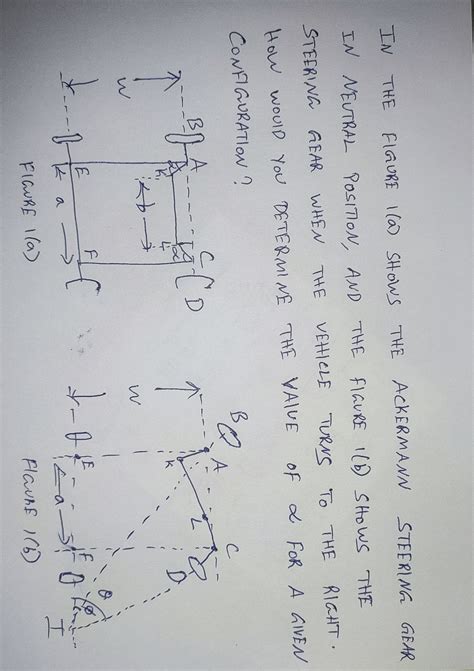 IN THE FIGURE 1(a) SHOWS THE ACKERMANN STEERING GEAR
IN NEUTRAL POSITION, AND THE FIGURE 1(b) SHOWS THE
STEERING GEAR WHEN THE VEHICLE TURNS TO THE RIGHT.
HOW WOULD YOU DETERMINE THE VALUE OF α FOR A GIVEN
CONFIGURATION?
B A C D
K L α
b
W
E F
a
FIGURE 1(a)
B A C
K L D
W
E F θ φ I
a
FIGURE 1(b)